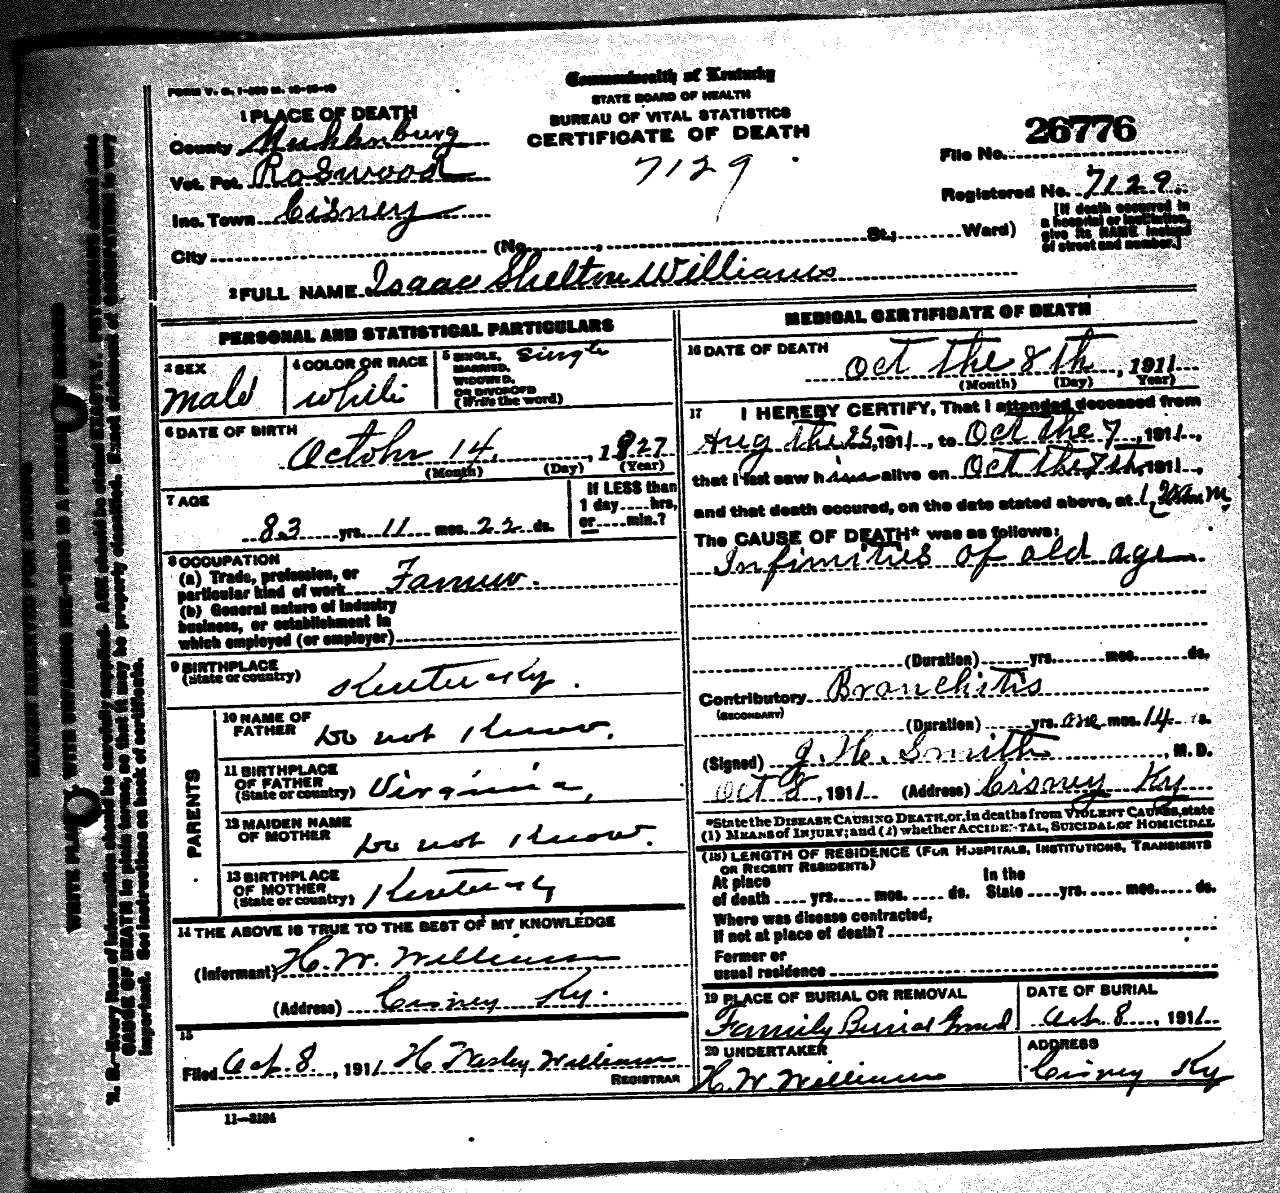 FORM V. S. 1-
Commonwealth of Kentucky
STATE BOARD OF HEALTH
BUREAU OF VITAL STATISTICS
CERTIFICATE OF DEATH
7129
1 PLACE OF DEATH
County Muhlenburg
Vot. Pct. Rosewood
Inc. Town Cisney
City (No. , St.; Ward)
26776
File No.
Registered No. 7129.
[If death occurred in
a hospital or institution,
give its NAME instead
of street and number.]
2 FULL NAME Isaac Shelton Williams
PERSONAL AND STATISTICAL PARTICULARS
3 SEX
male
4 COLOR OR RACE
white
5 SINGLE, single
MARRIED,
WIDOWED,
OR DIVORCED
(Write the word)
6 DATE OF BIRTH
October 14, , 1827
(Month) (Day) (Year)
7 AGE
83 yrs. 11 mos. 22 ds.
If LESS than
1 day hrs,
or min.?
8 OCCUPATION
(a) Trade, profession, or
particular kind of work Farmer.
(b) General nature of industry
business, or establishment in
which employed (or employer)
9 BIRTHPLACE
(State or country) Kentucky.
PARENTS
10 NAME OF
FATHER Do not Know.
11 BIRTHPLACE
OF FATHER
(State or country) Virginia,
12 MAIDEN NAME
OF MOTHER Do not Know.
13 BIRTHPLACE
OF MOTHER
(State or country) Kentucky
14 THE ABOVE IS TRUE TO THE BEST OF MY KNOWLEDGE
(Informant) H. W. Williams
(Address) Cisney Ky.
15
Filed Oct. 8. , 1911 H Wesley Williams
REGISTRAR
11—3184
MEDICAL CERTIFICATE OF DEATH
16 DATE OF DEATH
Oct the 8th , 1911
(Month) (Day) Year)
17 I HEREBY CERTIFY, That I attended deceased from
Aug the 25 , 1911 , to Oct the 7 , 1911 ,
that I last saw him alive on Oct the 7th 1911 ,
and that death occured, on the date stated above, at 1 m.
The CAUSE OF DEATH* was as follows:
Infimities of old age
(Duration) yrs. mos. ds.
Contributory Bronchitis
(SECONDARY)
(Duration) yrs. one mos. 14 ds.
(Signed) J. H. Smith , M. D.
Oct 8 , 1911 (Address) Cisney Ky
*State the DISEASE CAUSING DEATH, or, in deaths from VIOLENT CAUSES, state
(1) MEANS OF INJURY; and (2) whether ACCIDENTAL, SUICIDAL or HOMICIDAL
(18) LENGTH OF RESIDENCE (FOR HOSPITALS, INSTITUTIONS, TRANSIENTS
OR RECENT RESIDENTS)
At place In the
of death yrs. mos. ds. State yrs. mos. ds.
Where was disease contracted,
If not at place of death?
Former or
usual residence
19 PLACE OF BURIAL OR REMOVAL
Family Burial Ground
DATE OF BURIAL
Oct. 8 , 1911
20 UNDERTAKER
H. W. Williams
ADDRESS
Cisney Ky
MARGIN RESERVED FOR BINDING
WRITE PLAINLY, WITH UNFADING INK—THIS IS A PERMANENT RECORD
N. B.—Every item of information should be carefully supplied. AGE should be stated EXACTLY. PHYSICIANS should state
CAUSE OF DEATH in plain terms, so that it may be properly classified. Exact statement of OCCUPATION is very
important. See instructions on back of certificate.